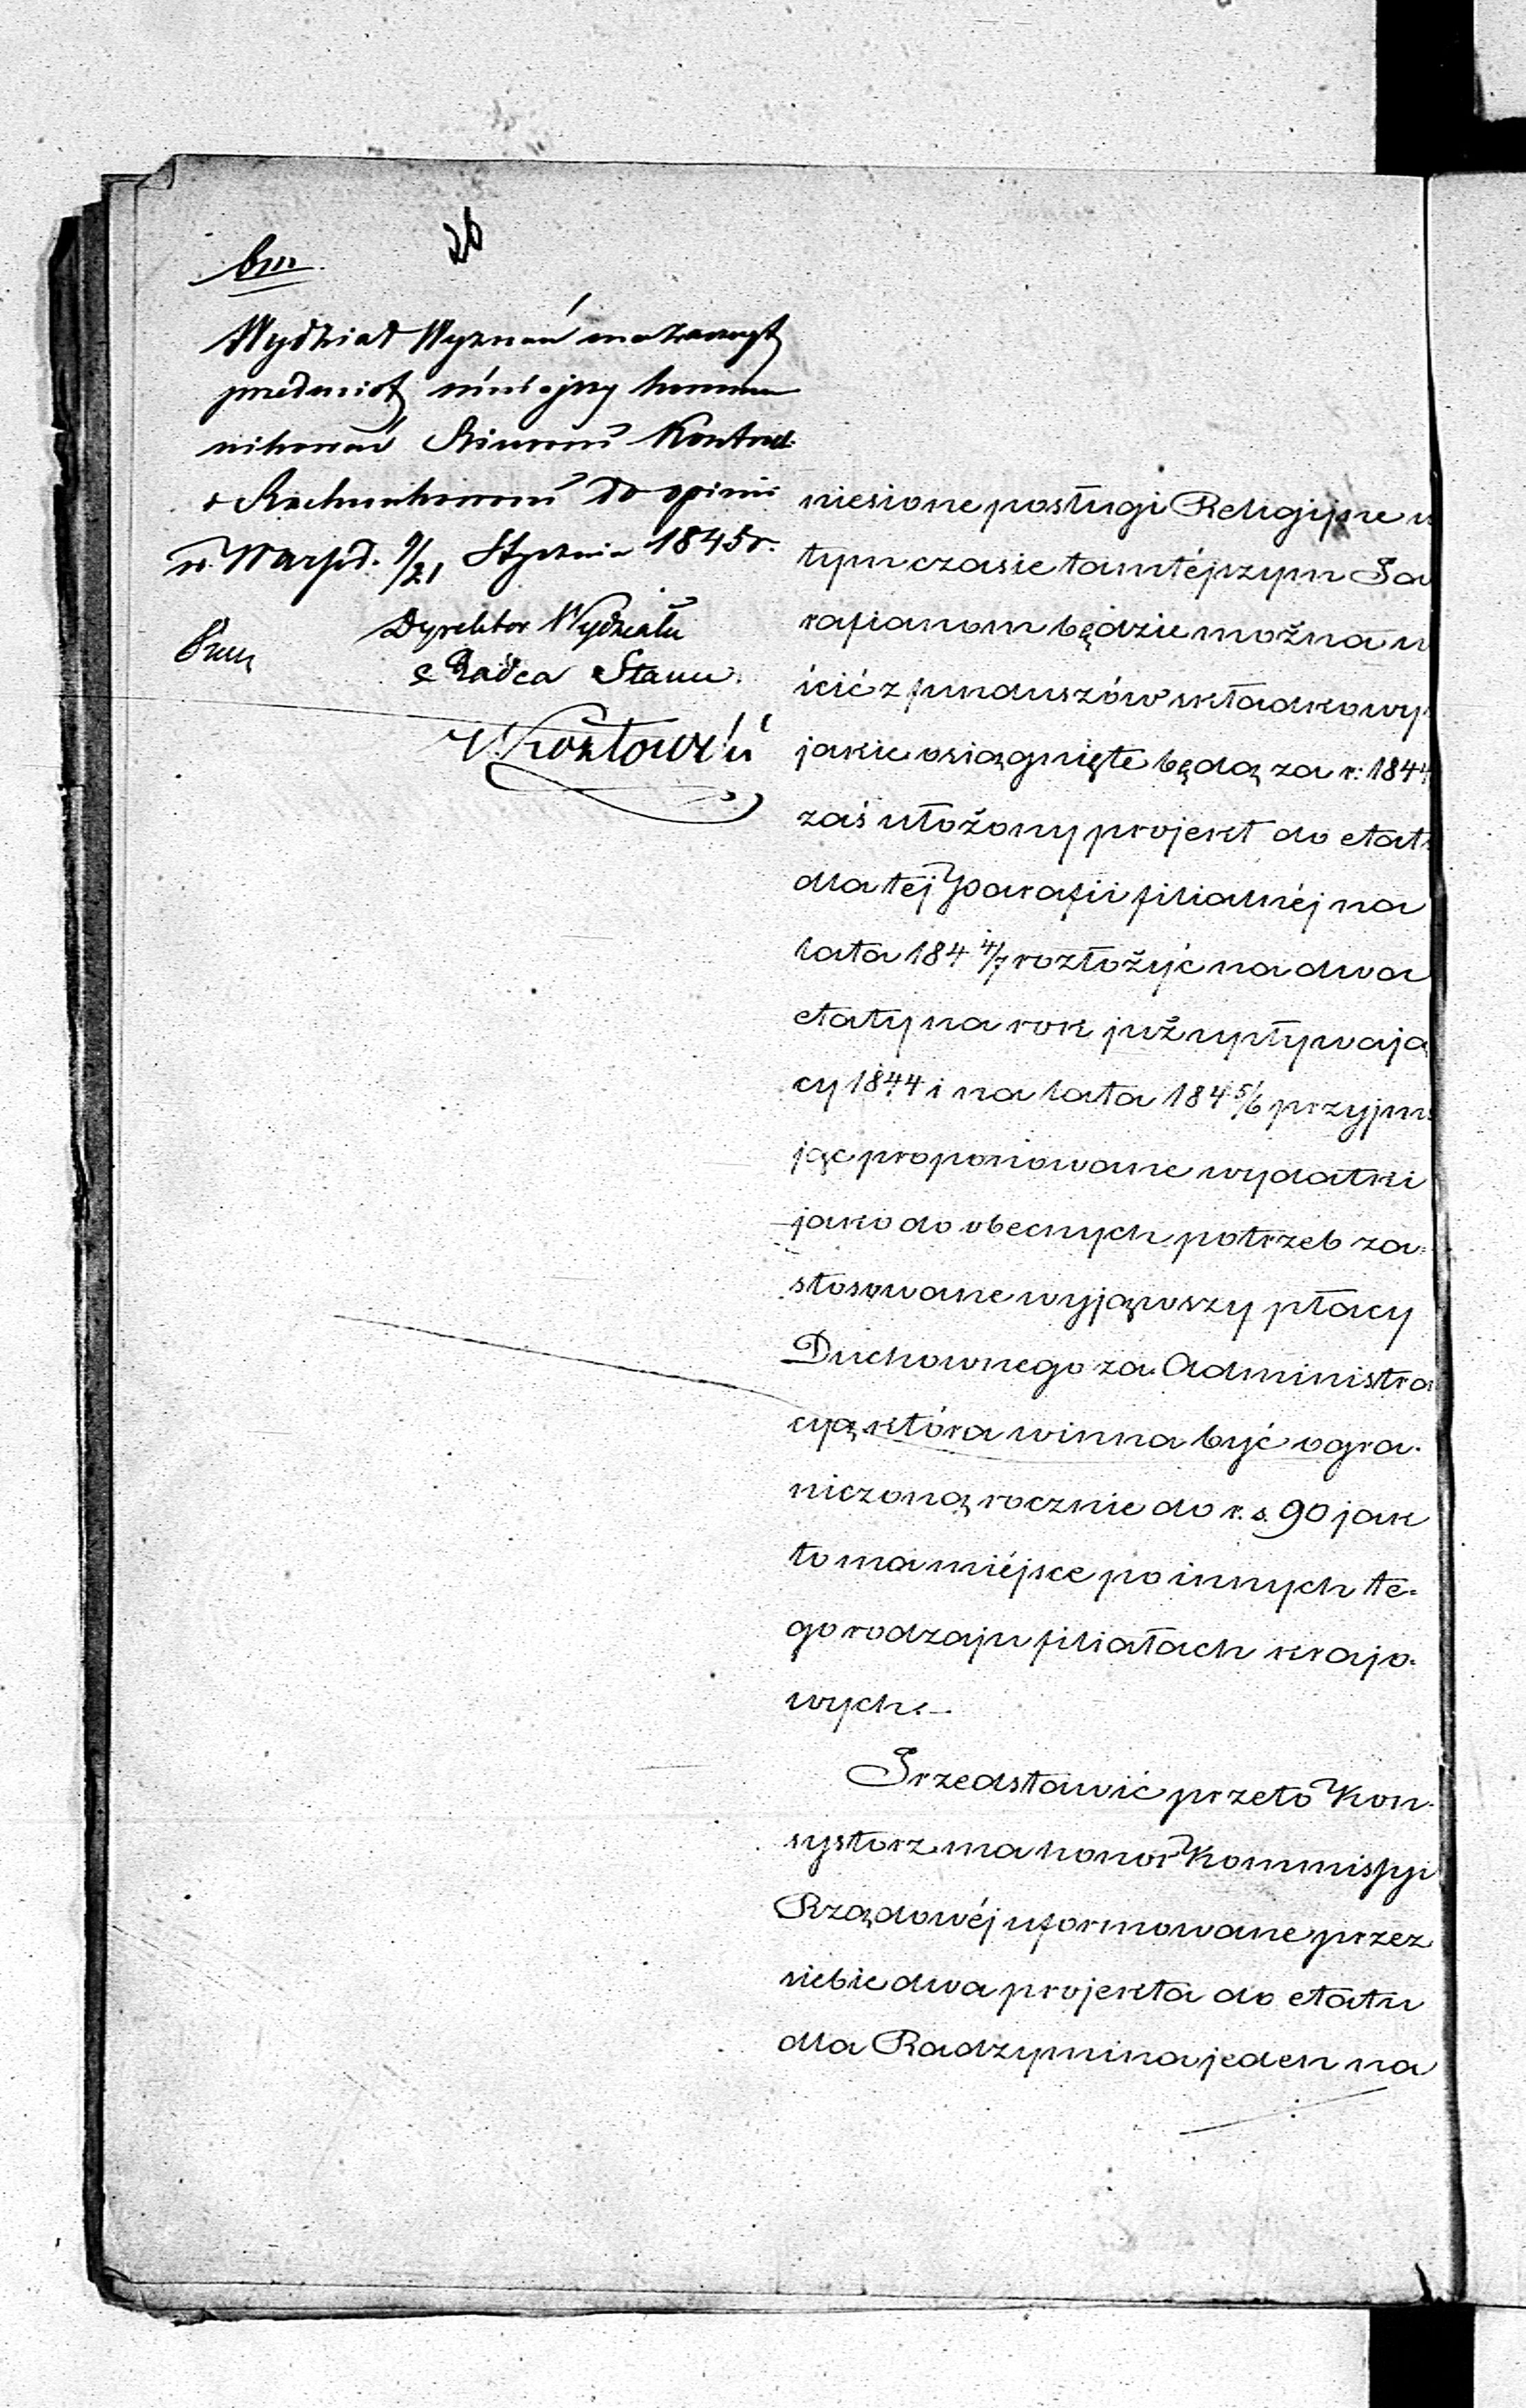 26
bm
Wydział Wyznań ma zaszczyt
przedmiot niniejszy kommu
nikować Biurowi Kontroli
i Rachunkowemu do opinii
w Warsz. d. 9/21 Stycznia 1845 r.
Dyrektor Wydziału
Radca Stanu
niesione posługi Religijne w
tym czasie tamtéjszym Pa
rafianom będzie można u
iścić z funduszów składkowy
jakie osiągnięte będą za r: 1844
zaś ułożony projekt do etatu
dla tej Parafii filialnéj na
lata 184 4/7 rozłożyć na dwa
etaty na rok już upływają
cy 1844 i na lata 184 5/6 przyjmu
jąc proponowane wydatki
jako do obecnych potrzeb za=
stosowane wyjąwszy płacy
Duchownego za Administra
cyą która winna być ogra-
niczoną rocznie do r. s. 90 jak
to ma miéjsce po innych te-
go rodzaju filiałach krajo-
wych.—
Przedstawić przeto Kon-
systorz ma honor Kommissyi
Rządowéj uformowane przez
siebie dwa projekta do etatu
dla Radzymina jeden na